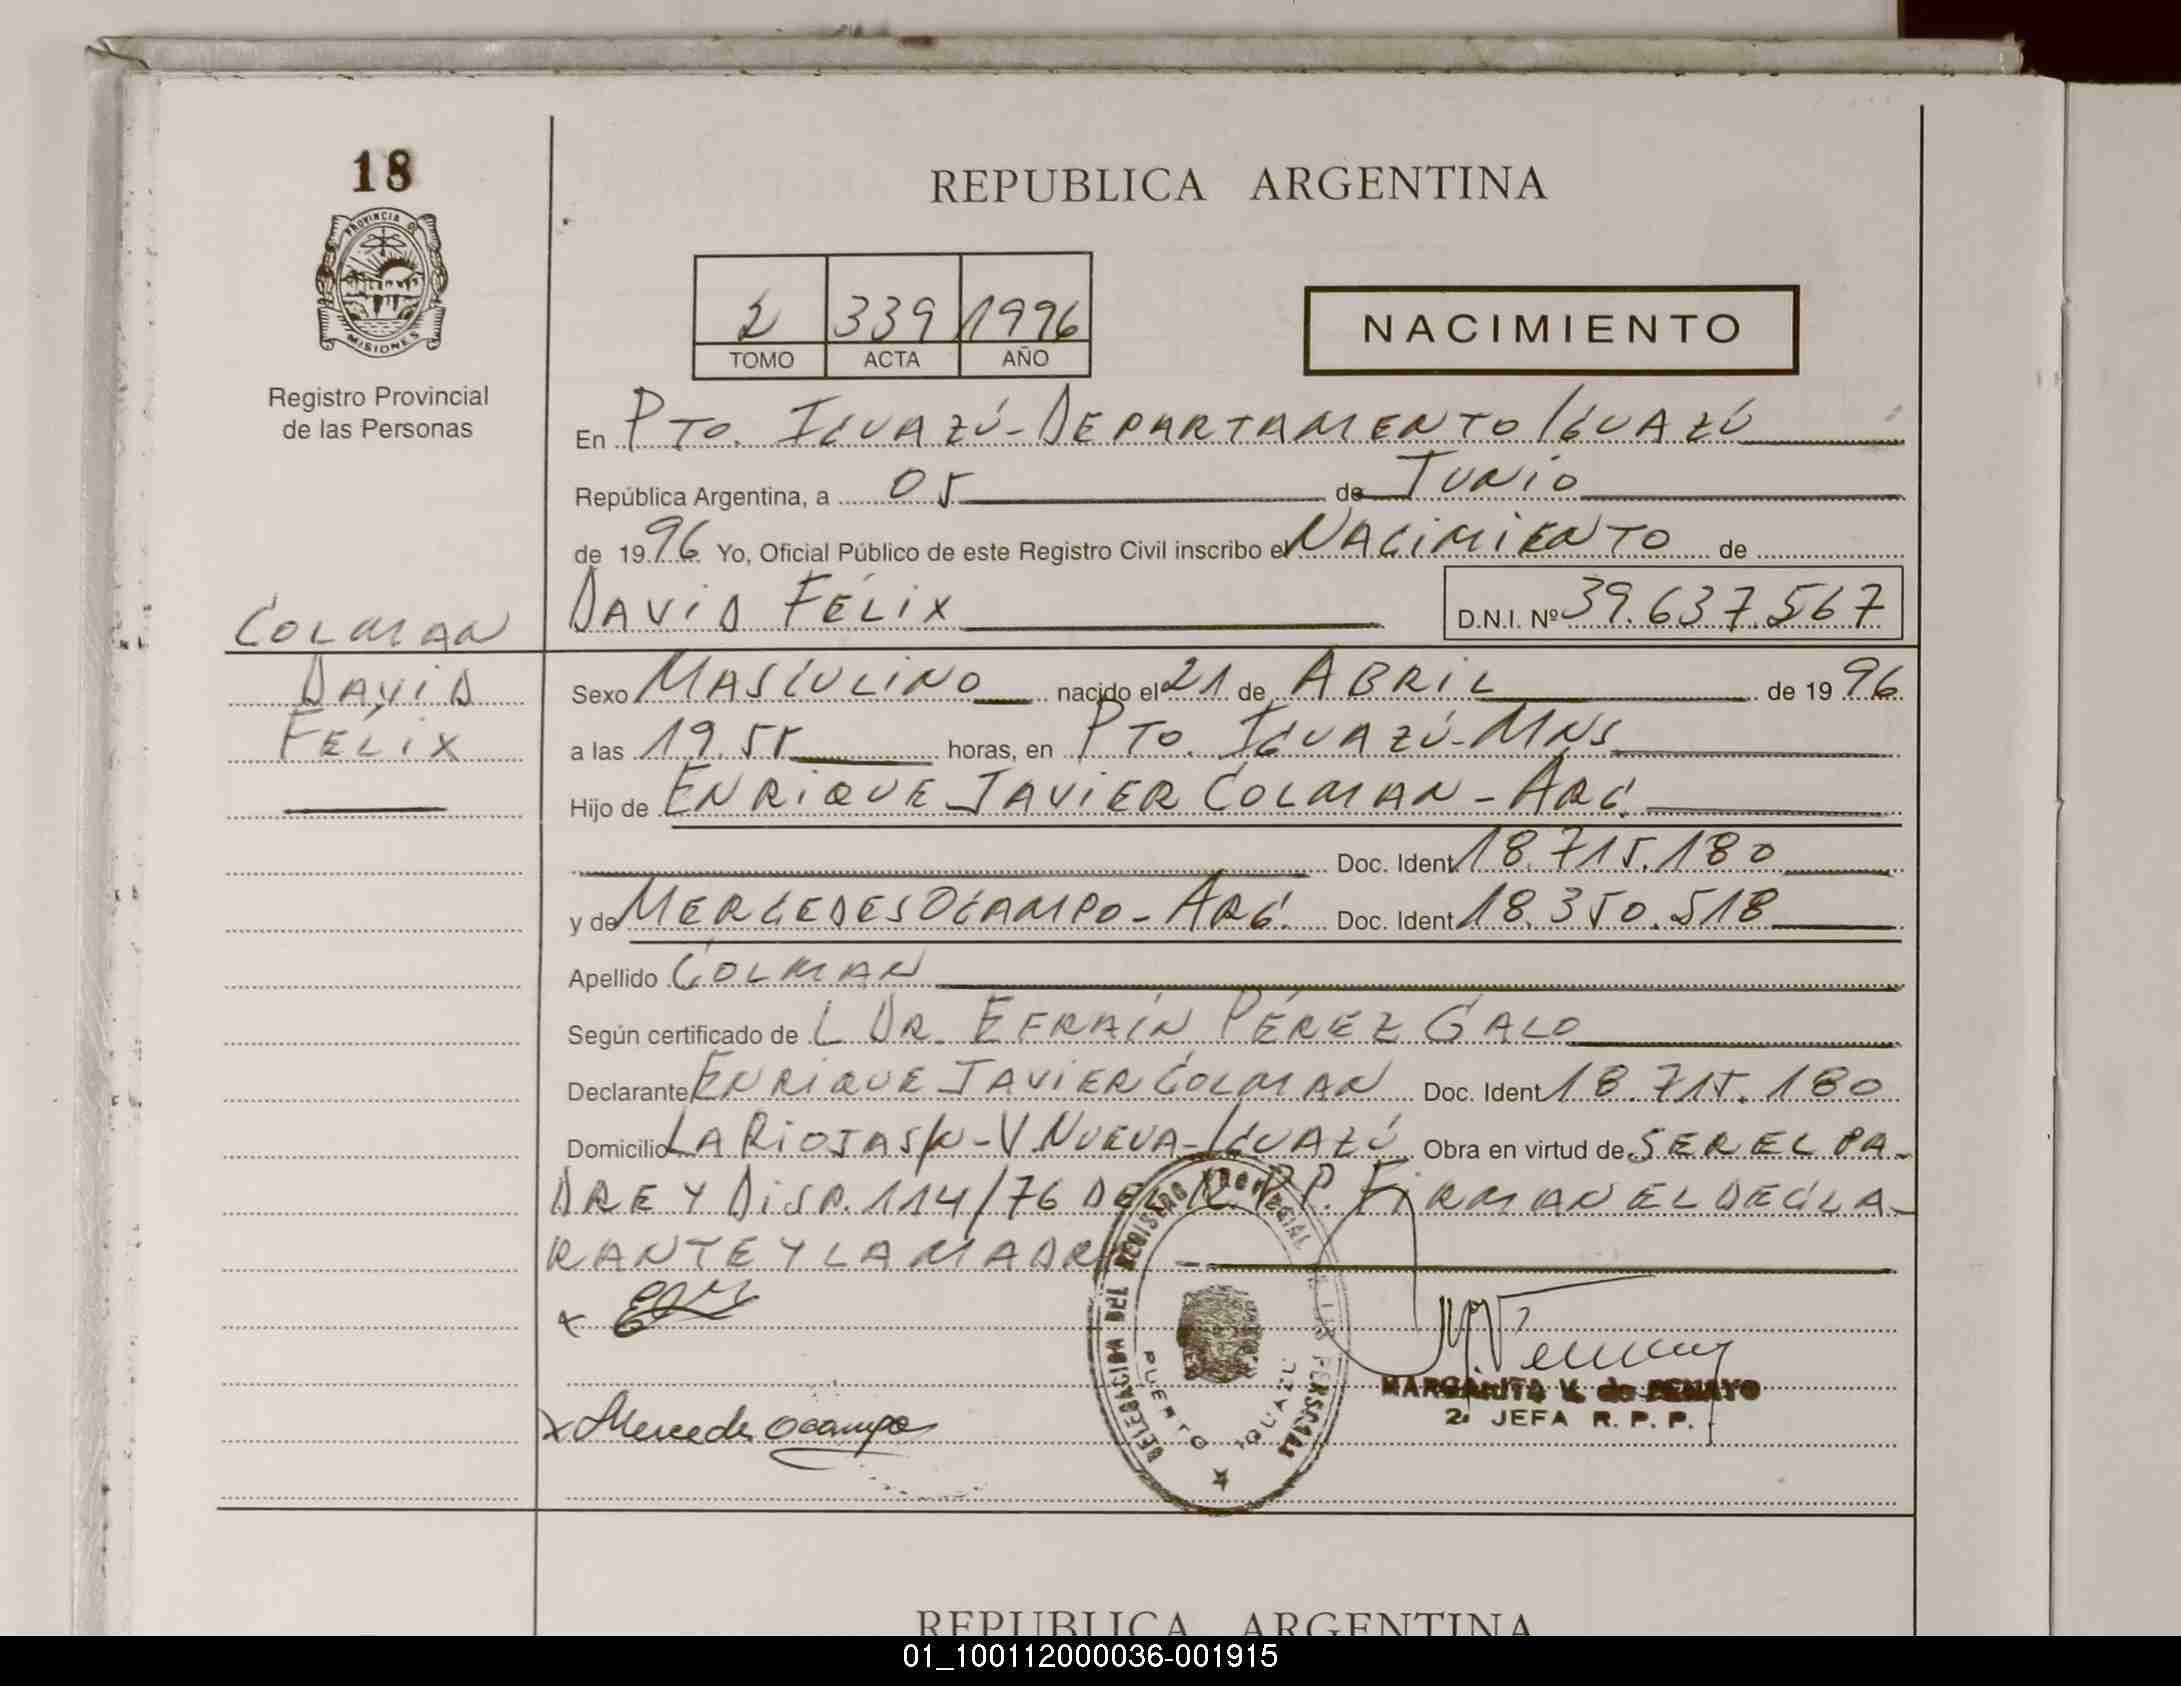 18
PROVINCIA DE
MISIONES
Registro Provincial
de las Personas
REPUBLICA ARGENTINA
2 339 1996
TOMO ACTA AÑO
NACIMIENTO
En PTO. IGUAZÚ - DEPARTAMENTO IGUAZÚ
República Argentina, a 05 de JUNIO
de 1996 Yo, Oficial Público de este Registro Civil inscribo el NACIMIENTO de
DAVID FÉLIX D.N.I. Nº 39.637.567
COLMAN
DAVID
FÉLIX
Sexo MASCULINO nacido el 21 de ABRIL de 1996
a las 19.55 horas, en PTO. IGUAZÚ - MNS
Hijo de ENRIQUE JAVIER COLMAN - ARG.
Doc. Ident. 18.715.180
y de MERCEDES OCAMPO - ARG. Doc. Ident 18.350.518
Apellido COLMAN
Según certificado de L DR. EFRAÍN PÉREZ GALO
Declarante ENRIQUE JAVIER COLMAN Doc. Ident 18.715.180
Domicilio LA RIOJA S/N - V. NUEVA - IGUAZÚ Obra en virtud de SER EL PA-
DRE Y DISP. 114/76 DEL R.P.P. FIRMAN EL DECLA-
RANTE Y LA MADRE
x
x Mercedes Ocampo
DELEGACION DEL REGISTRO PROVINCIAL DE LAS PERSONAS
PUERTO IGUAZU
MARGARITA V. de PENAYO
2. JEFA R. P. P.
REPUBLICA ARGENTINA
01_100112000036-001915